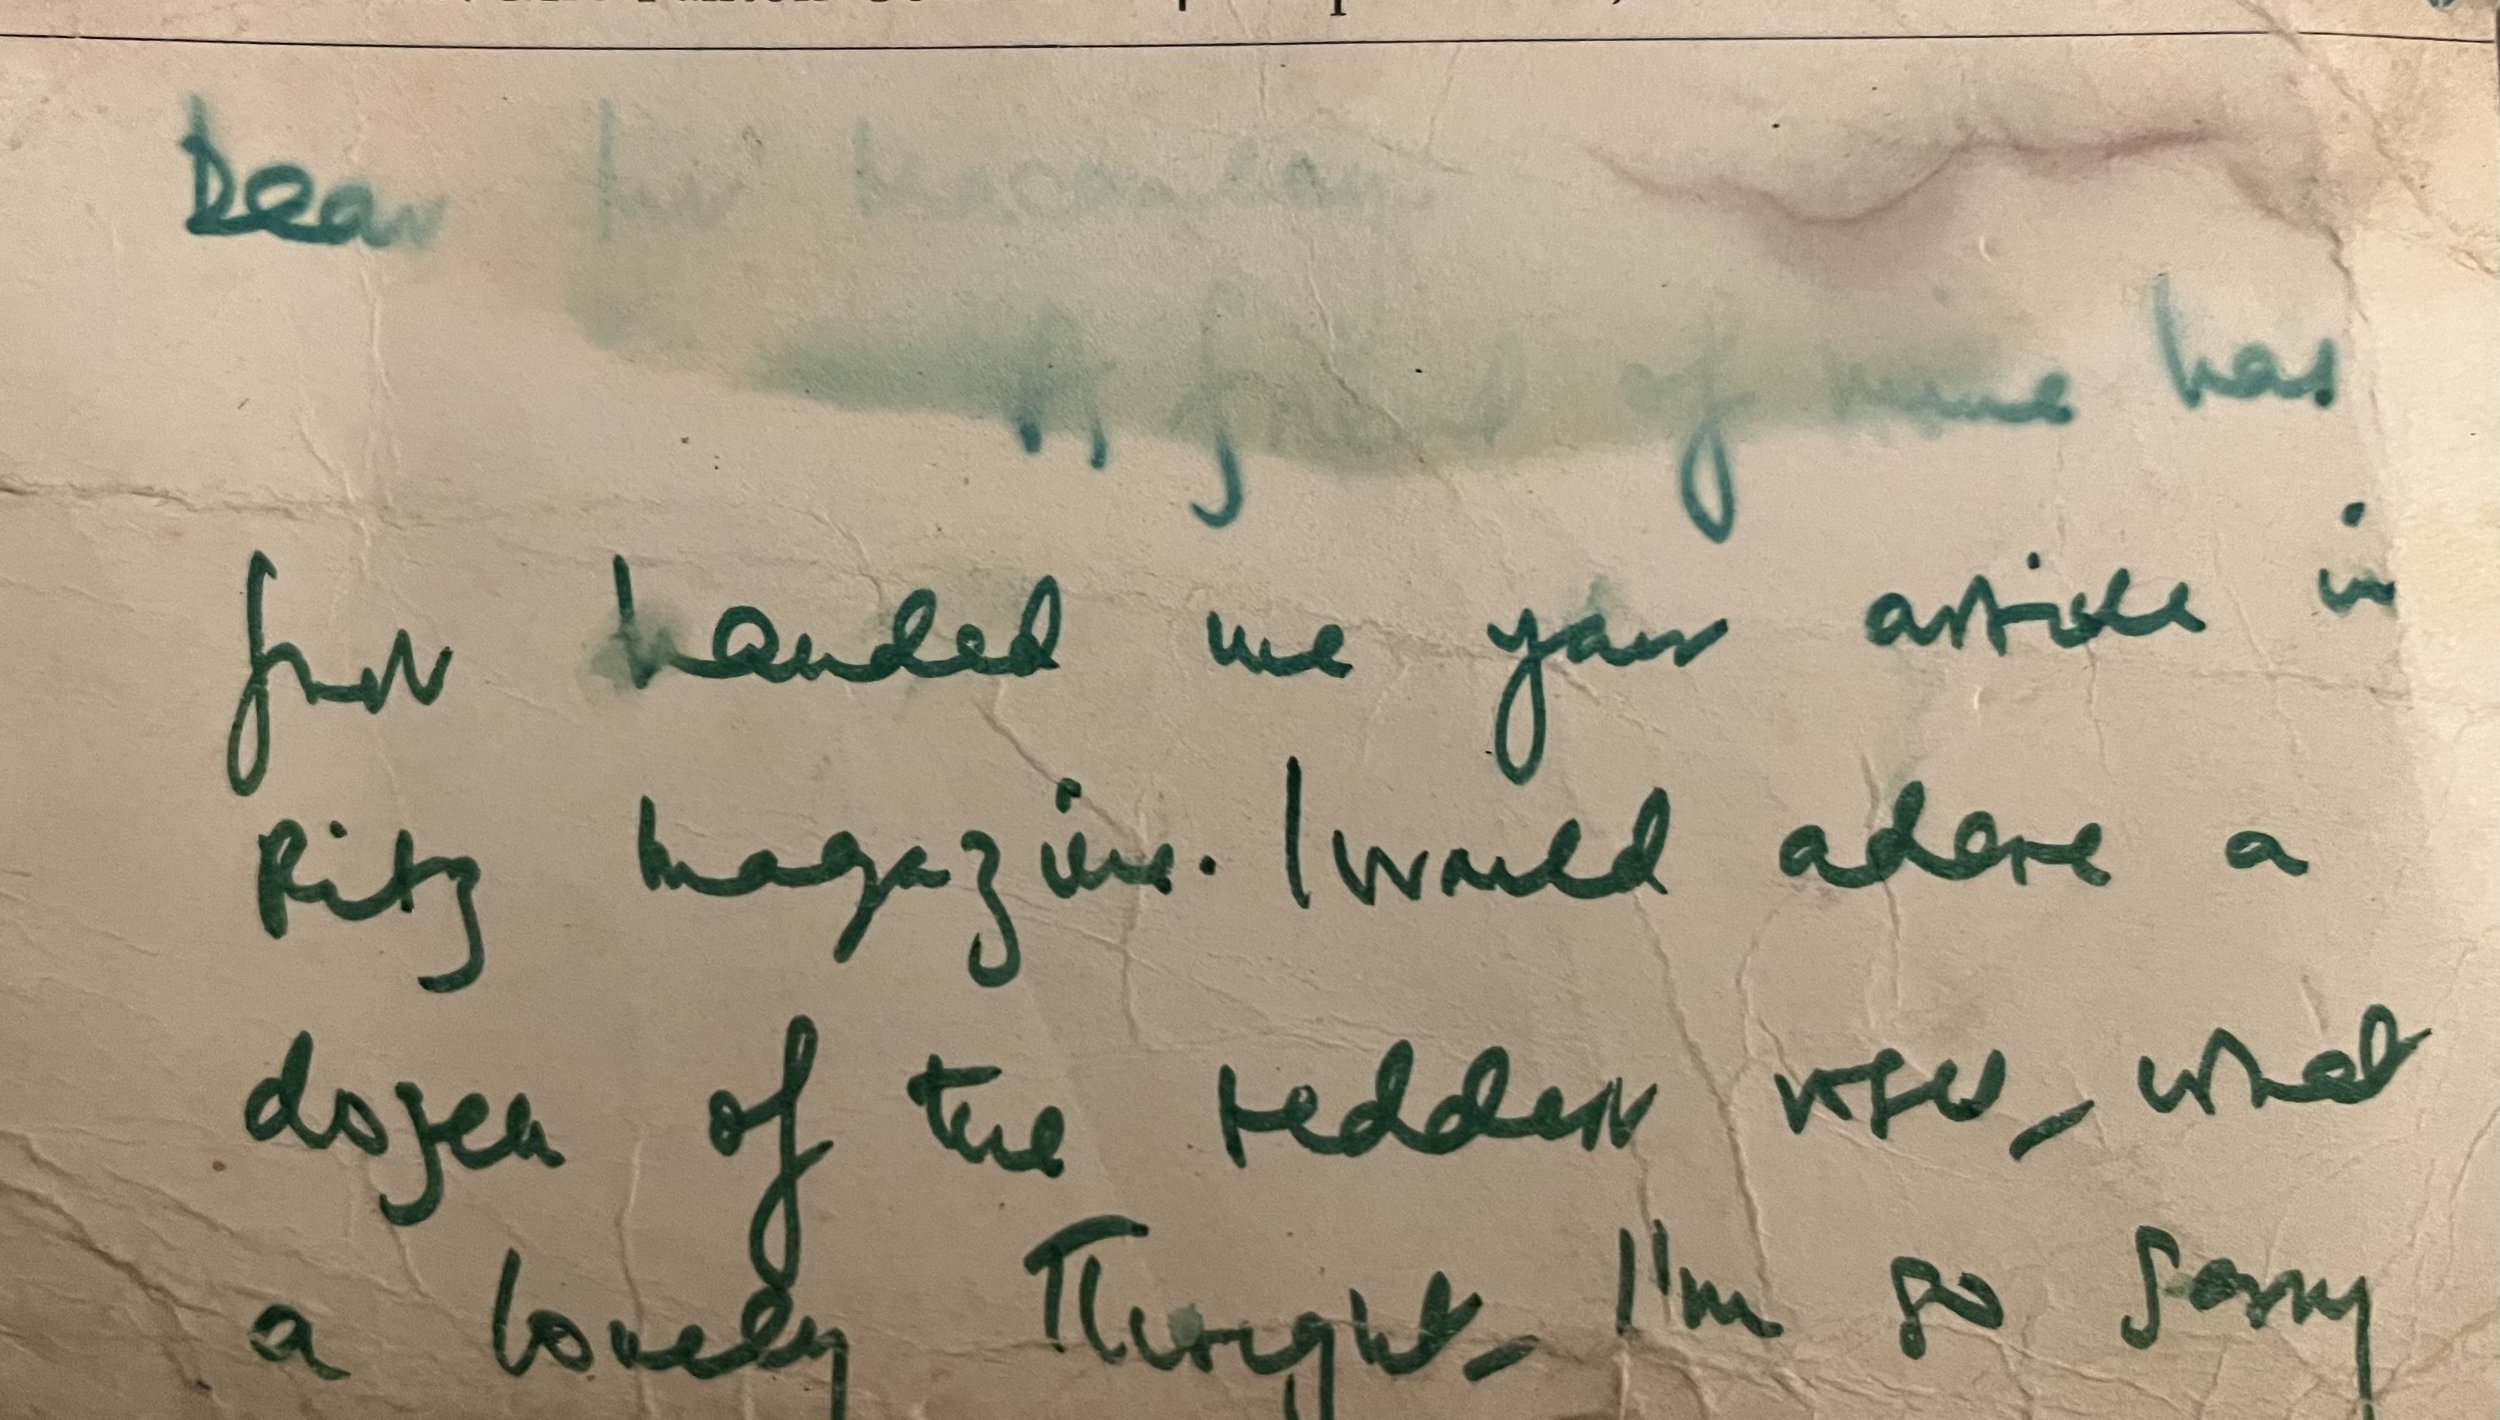 Dear
A friend of mine has
just handed me your article in
Ritz magazine. I would adore a
dozen of the reddest roses – what
a lovely Thought – I'm so sorry